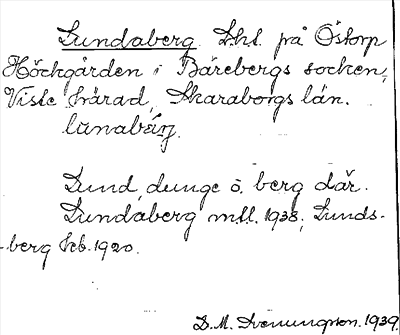 Lundaberg Lht. på Östorp
Höckgården i Bärebergs socken,
Viste härad, Skaraborgs län.
lùnabærj.
Lund, dunge o. berg där.
Lundaberg mtl. 1938; Lunds-
-berg Jeb. 1920.
D. M. Svenungson. 1939.